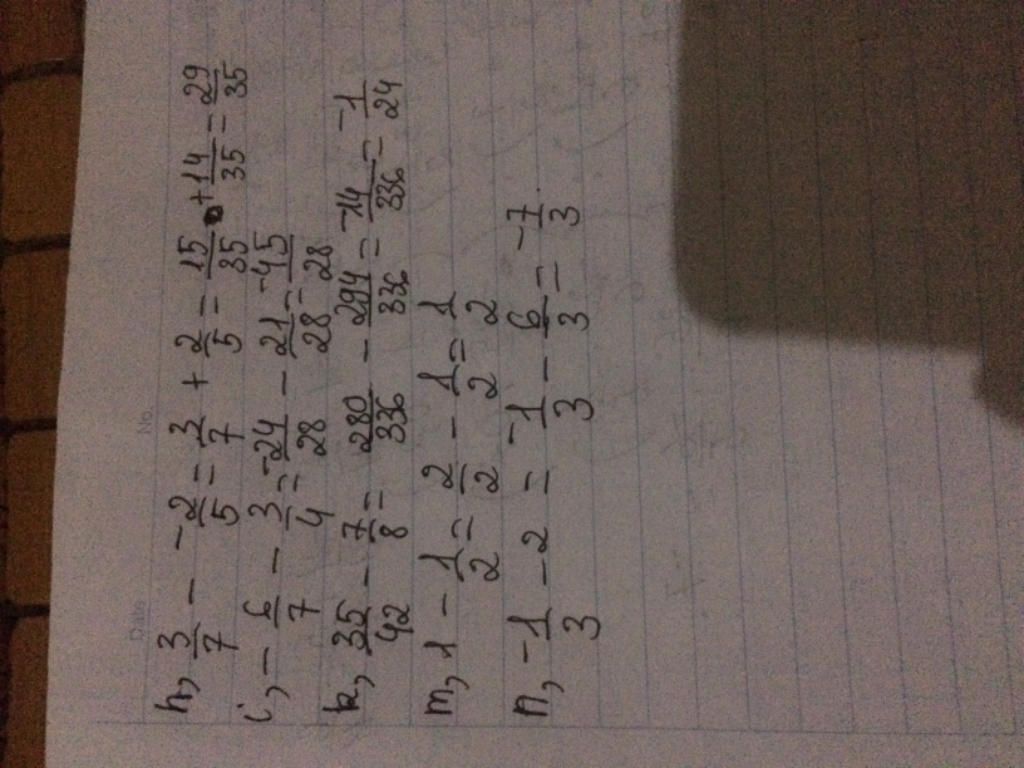 No.
Date
h, 3/7 - -2/5 = 3/7 + 2/5 = 15/35 + 14/35 = 29/35
i, -6/7 - 3/4 = -24/28 - 21/28 = -45/28
k, 35/42 - 7/8 = 280/336 - 294/336 = -14/336 = -1/24
m, 1 - 1/2 = 2/2 - 1/2 = 1/2
n, -1/3 - 2 = -1/3 - 6/3 = -7/3